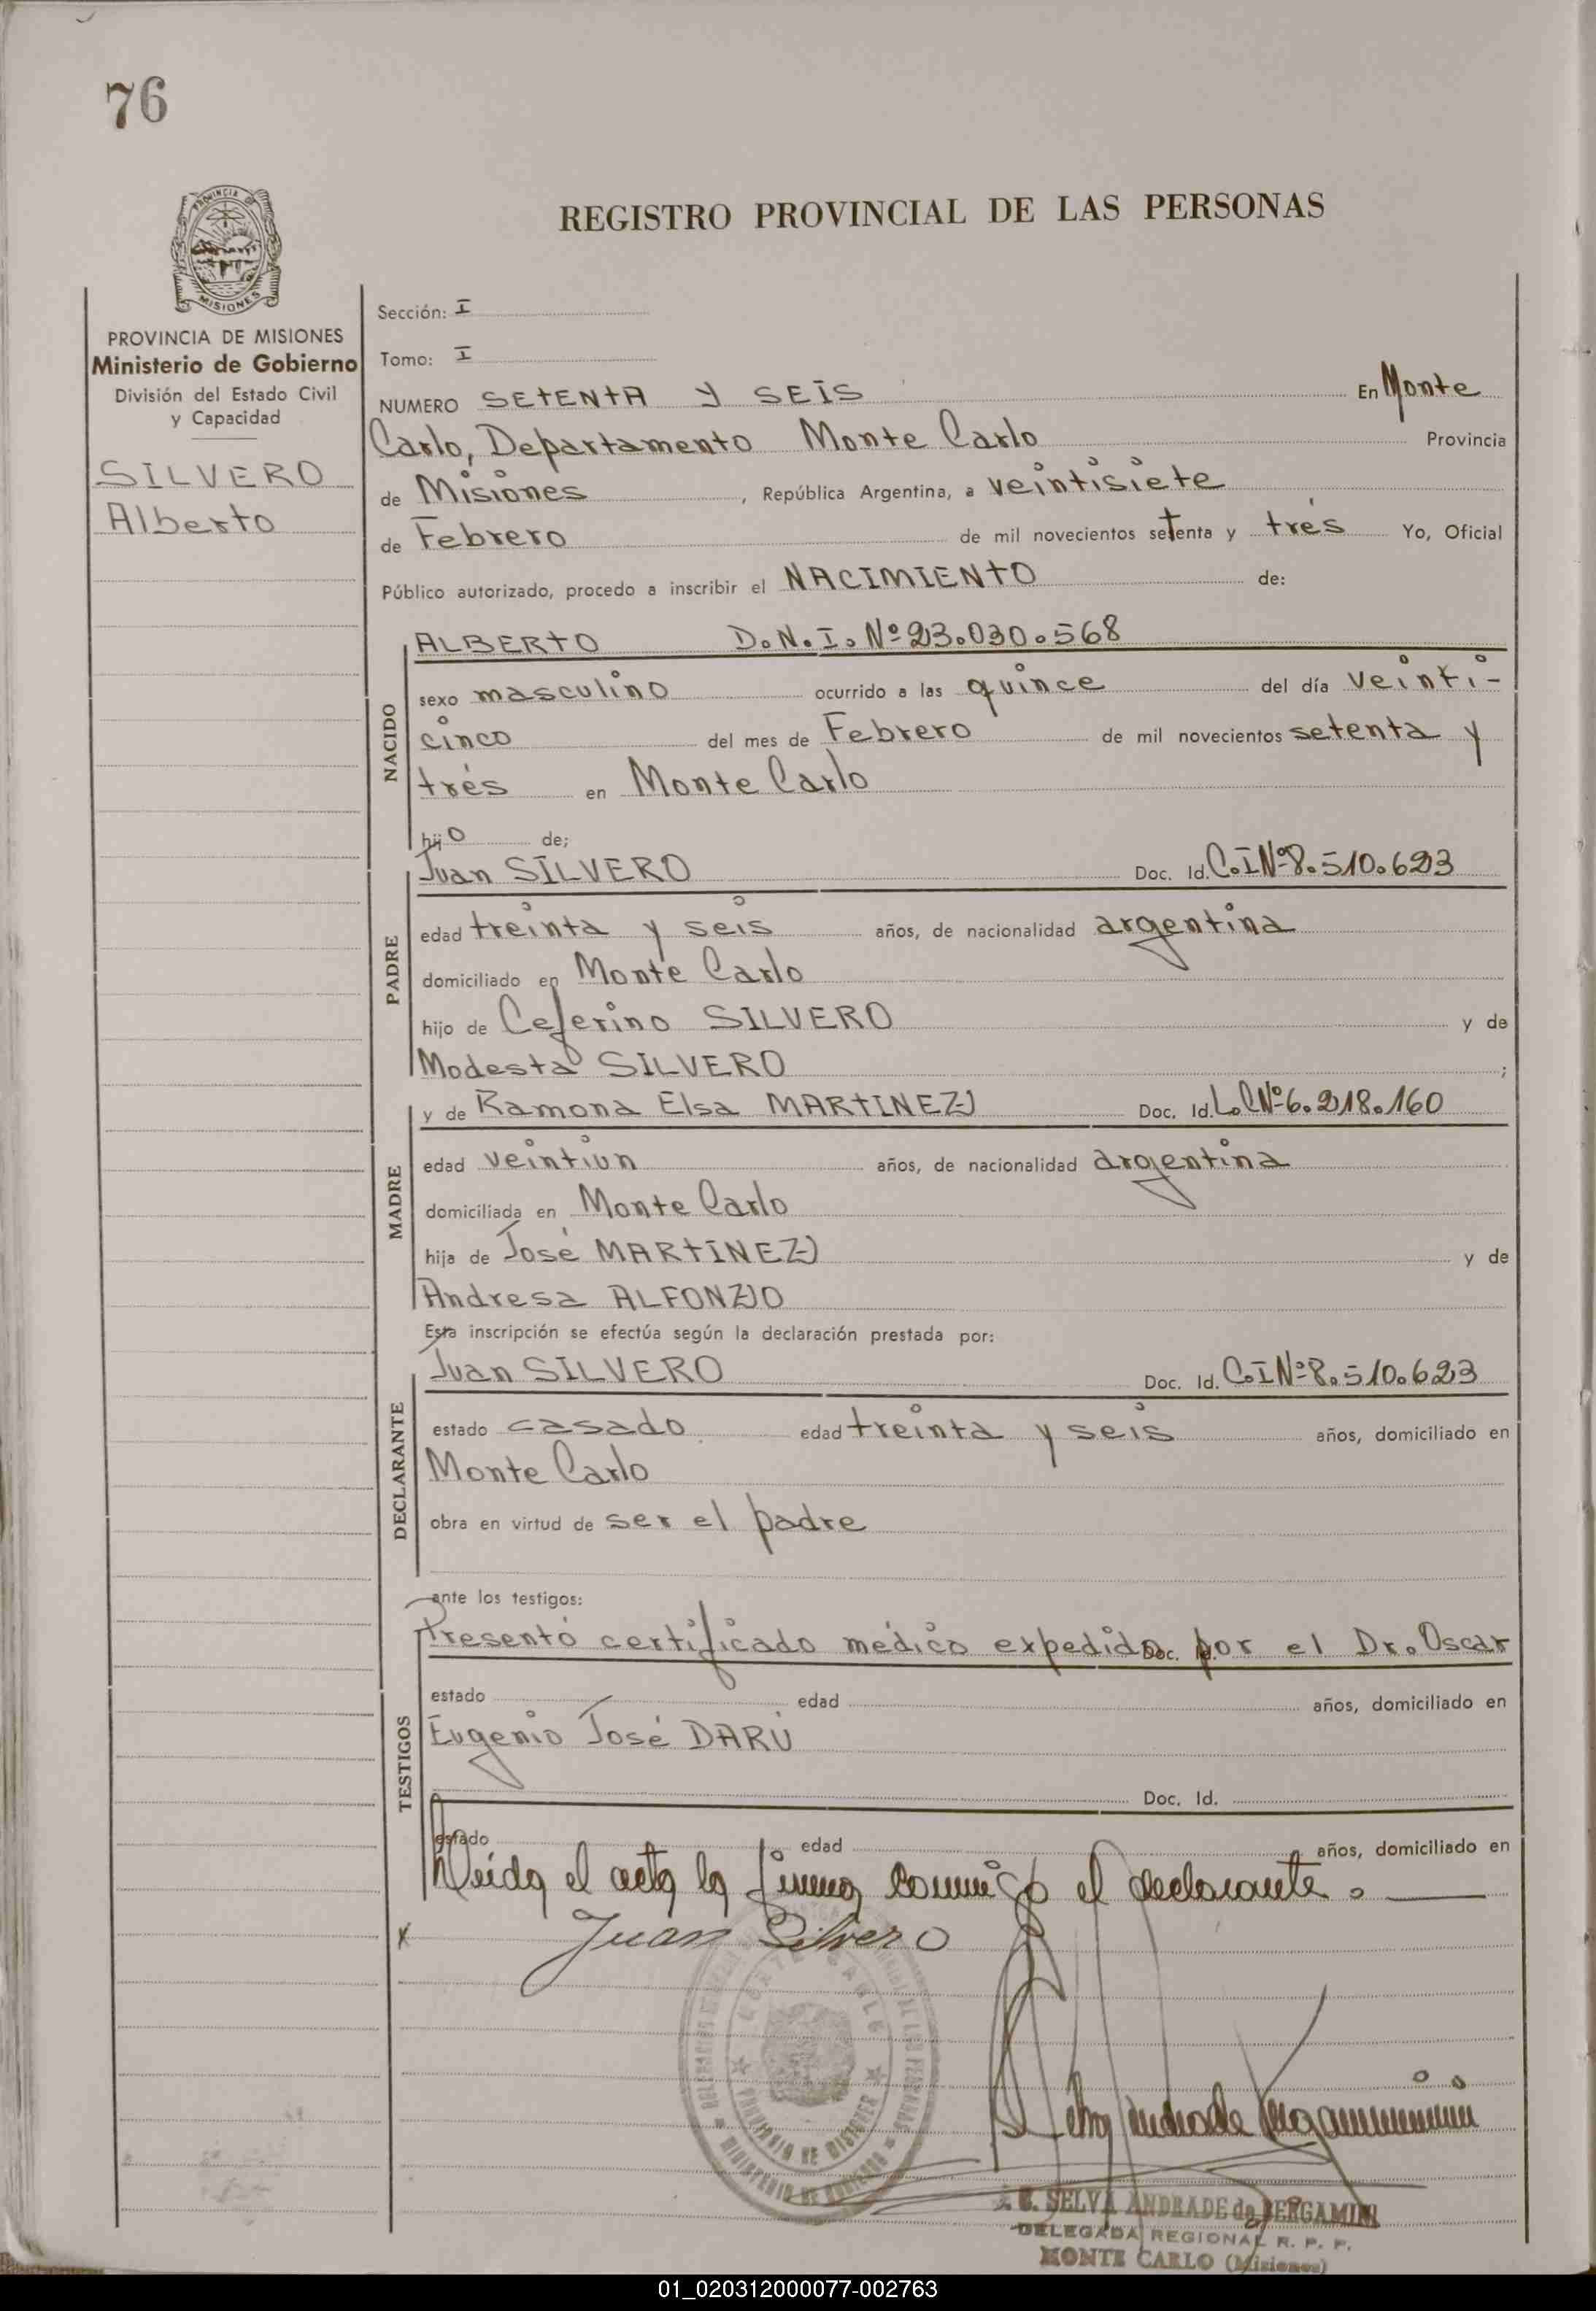 76
PROVINCIA
MISIONES
REGISTRO PROVINCIAL DE LAS PERSONAS
PROVINCIA DE MISIONES
Ministerio de Gobierno
División del Estado Civil
y Capacidad
SILVERO
Alberto
Sección: I
Tomo: I
NUMERO SETENTA y SEIS En Monte
Carlo, Departamento Monte Carlo Provincia
de Misiones, República Argentina, a veintisiete
de Febrero de mil novecientos setenta y trés Yo, Oficial
Público autorizado, procedo a inscribir el NACIMIENTO de:
NACIDO
ALBERTO D.N.I. Nº 23.030.568
sexo masculino ocurrido a las quince del día veinti-
cinco del mes de Febrero de mil novecientos setenta y
trés en Monte Carlo
hijo de;
PADRE
Juan SILVERO Doc. Id. C.I Nº 8.510.623
edad treinta y seis años, de nacionalidad argentina
domiciliado en Monte Carlo
hijo de Ceferino SILVERO y de
Modesta SILVERO ;
MADRE
y de Ramona Elsa MARTINEZ Doc. Id. L.C Nº 6.218.160
edad veintiun años, de nacionalidad argentina
domiciliada en Monte Carlo
hija de José MARTINEZ y de
Andresa ALFONZO
Esta inscripción se efectúa según la declaración prestada por:
DECLARANTE
Juan SILVERO Doc. Id. C.I Nº 8.510.623
estado casado edad treinta y seis años, domiciliado en
Monte Carlo
obra en virtud de ser el padre
ante los testigos:
TESTIGOS
Presentó certificado médico expedido Doc. Id. por el Dr. Oscar
estado edad años, domiciliado en
Eugenio José DARÚ
Doc. Id.
estado edad años, domiciliado en
Leída el acta la firma conmigo el declarante.
x Juan Silvero
PROVINCIA DE MISIONES
MINISTERIO DE GOBIERNO
SELVA ANDRADE de BERGAMINI
DELEGADA REGIONAL R. P. P.
MONTE CARLO (Misiones)
01_020312000077-002763